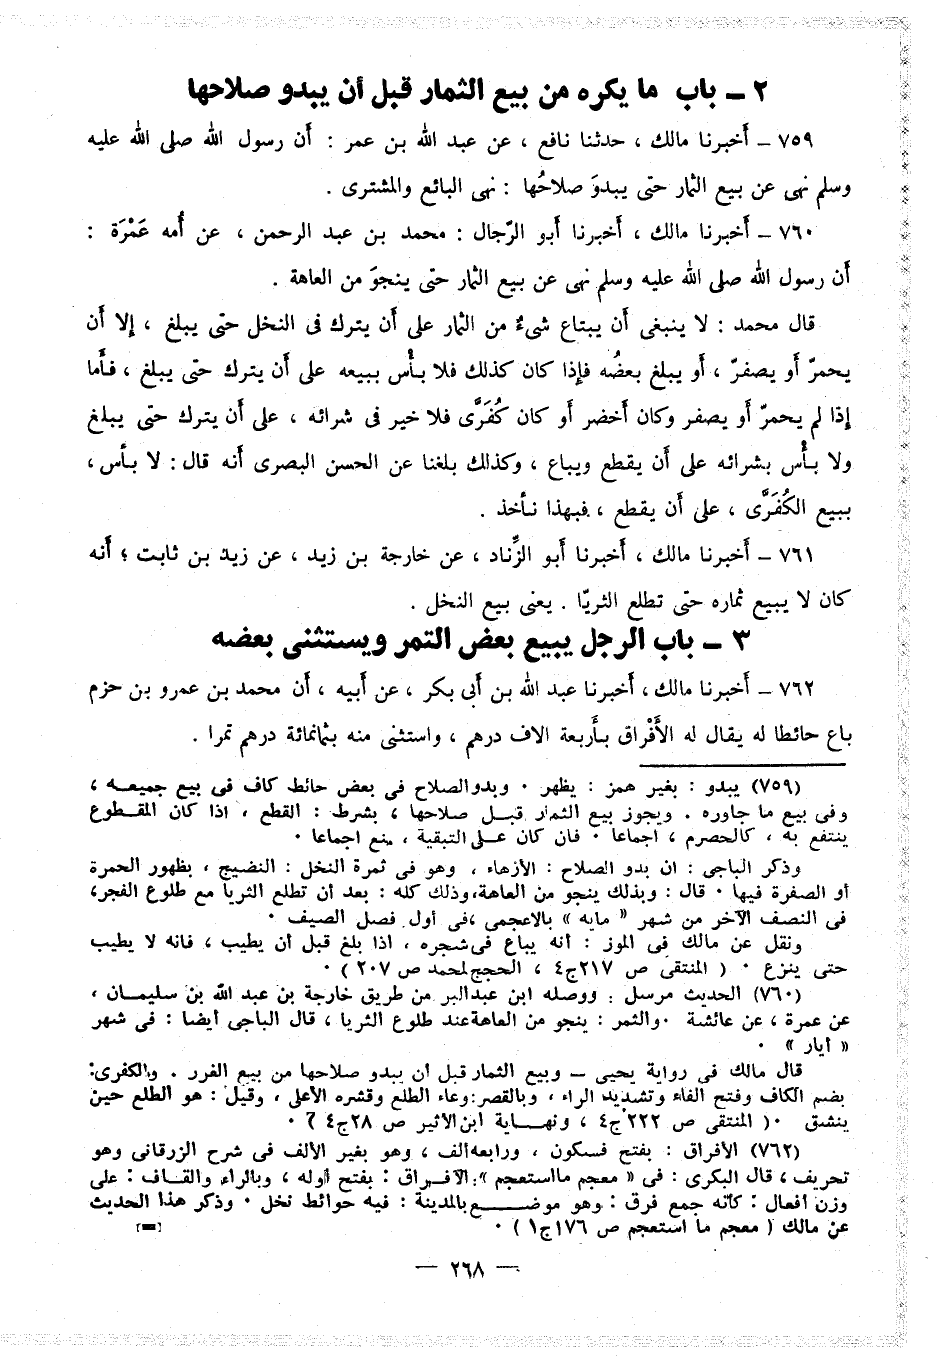 ٢ ــ باب ما يكره من بيع الثمار قبل أن يبدو صلاحها
٧٥٩ ــ أخبرنا مالك ، حدثنا نافع ، عن عبد الله بن عمر : أن رسول الله صلى الله عليه
وسلم نهى عن بيع الثمار حتى يبدوَ صلاحُها : نهى البائع والمشترى .
٧٦٠ ــ أخبرنا مالك ، أخبرنا أبو الرّجال : محمد بن عبد الرحمن ، عن أُمه عَمْرَة :
أن رسول الله صلى الله عليه وسلم نهى عن بيع الثمار حتى ينجوَ من العاهة .
قال محمد : لا ينبغى أن يبتاع شىءٌ من الثمار على أن يترك فى النخل حتى يبلغ ، إلا أن
يحمرّ أو يصفرّ ، أو يبلغ بعضُه فإذا كان كذلك فلا بأْس ببيعه على أن يترك حتى يبلغ ، فأَما
إذا لم يحمرّ أو يصفر وكان أخضر أو كان كُفَرَّى فلا خير فى شرائه ، على أن يترك حتى يبلغ
ولا بأْس بشرائه على أن يقطع ويباع ، وكذلك بلغنا عن الحسن البصرى أنه قال : لا بأس ،
ببيع الكُفَرَّى ، على أن يقطع ، فبهذا نأخذ .
٧٦١ ــ أخبرنا مالك ، أخبرنا أبو الزِّناد ، عن خارجة بن زيد ، عن زيد بن ثابت ؛ أنه
كان لا يبيع ثماره حتى تطلع الثريّا . يعنى بيع النخل .
٣ ــ باب الرجل يبيع بعض التمر ويستثنى بعضه
٧٦٢ ــ أخبرنا مالك ، أخبرنا عبد الله بن أبى بكر ، عن أبيه ، أن محمد بن عمرو بن حزم
باع حائطا له يقال له الأَفْراق بأَربعة الاف درهم ، واستثنى منه بثمانمائة درهم تمرا .
(٧٥٩) يبدو : بغير همز : يظهر ٠ وبدو الصلاح فى بعض حائط كاف فى بيع جميعه ،
وفى بيع ما جاوره . ويجوز بيع الثمار قبل صلاحها ، بشرط : القطع ، اذا كان المقطوع
ينتفع به ، كالحصرم ، اجماعا ٠ فان كان على التبقية ، منع اجماعا ٠
وذكر الباجى : ان بدو الصلاح : الأزهاء ، وهو فى ثمرة النخل : النضيج ، بظهور الحمرة
أو الصفرة فيها ٠ قال : وبذلك ينجو من العاهة، وذلك كله : بعد أن تطلع الثريا مع طلوع الفجر،
فى النصف الآخر من شهر « مايه » بالاعجمى ،فى أول فصل الصيف ٠
ونقل عن مالك فى الموز : أنه يباع فى شجره ، اذا بلغ قبل أن يطيب ، فانه لا يطيب
حتى ينزع ٠ ( المنتقى ص ٢١٧ج٤ ، الحجج لمحمد ص ٢٠٧ ) ٠
(٧٦٠) الحديث مرسل : ووصله ابن عبدالبر من طريق خارجة بن عبد الله بن سليمان ،
عن عمرة ، عن عائشة ٠ والثمر : ينجو من العاهة عند طلوع الثريا ، قال الباجى أيضا : فى شهر
« أيار » ٠
قال مالك فى رواية يحيى ــ وبيع الثمار قبل أن يبدو صلاحها من بيع الغرر . والكفرى:
بضم الكاف وفتح الفاء وتشديد الراء ، وبالقصر: وعاء الطلع وقشره الأعلى ، وقيل : هو الطلع حين
ينشق ٠ ( المنتقى ص ٢٢٢ ج٤ ، ونهاية ابن الأثير ص ٢٨ج٤ ) ٠
(٧٦٢) الأفراق : بفتح فسكون ، ورابعه الف ، وهو بغير الألف فى شرح الزرقانى وهو
تحريف ، قال البكرى : فى « معجم ما استعجم » : الأفراق : بفتح أوله ، وبالراء والقاف : على
وزن أفعال : كأنه جمع فرق : وهو موضع بالمدينة : فيه حوائط نخل ٠ وذكر هذا الحديث
عن مالك ( معجم ما استعجم ص ١٧٦ج١ ) ٠
— ٢٦٨ —